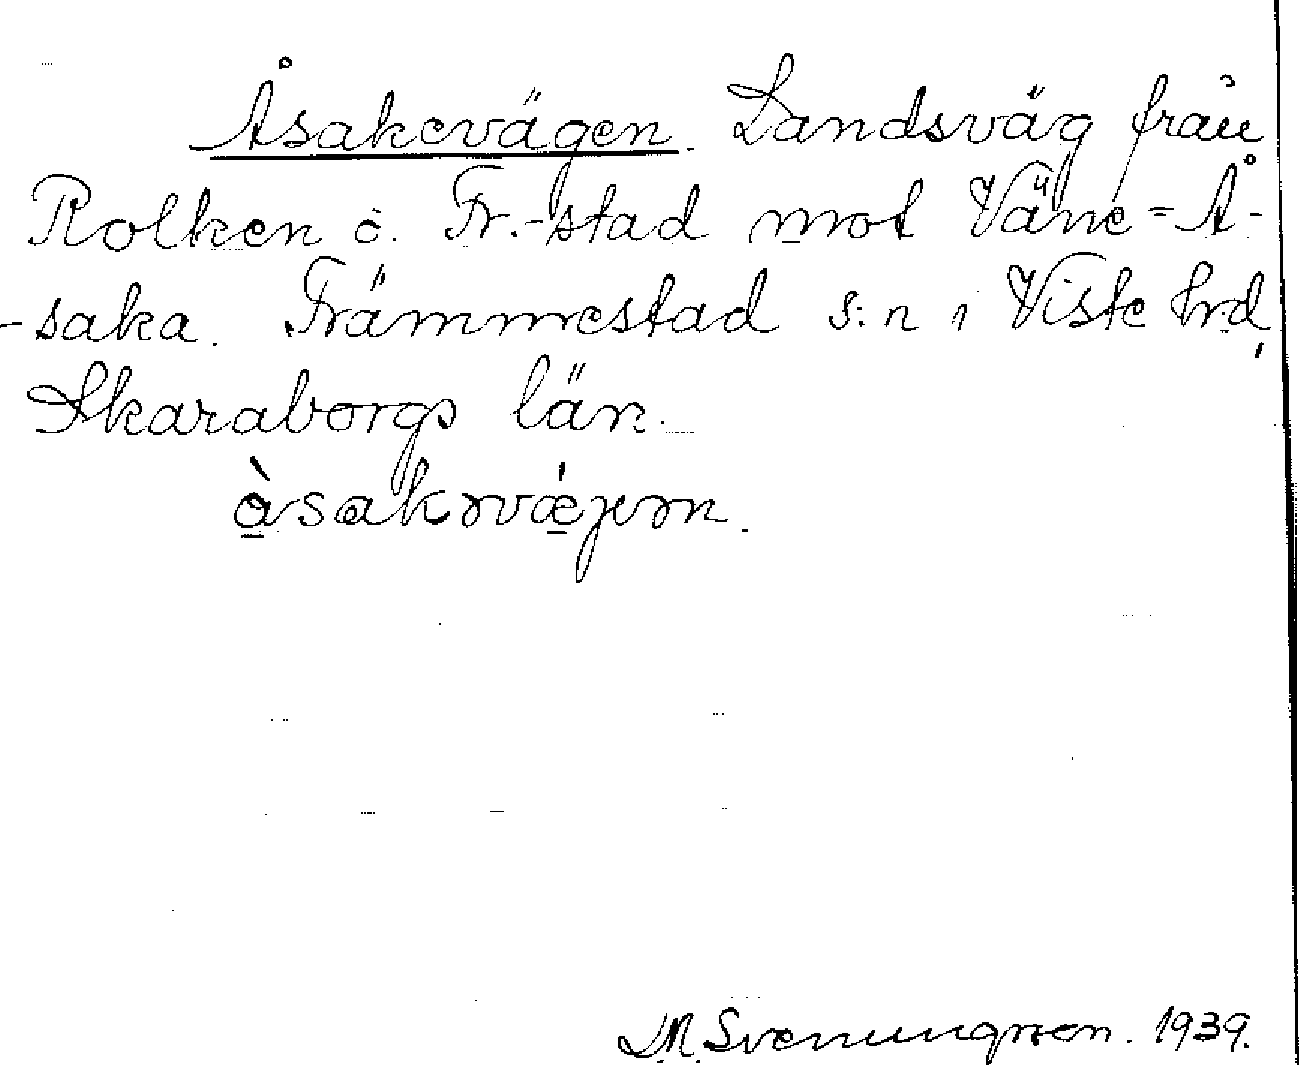 Åsakevägen. Landsväg från
Rolken ö. Fr.-stad mot Väne=Å-
-saka. Främmestad s:n i Viste hrd,
Skaraborgs län.
åsakəvǽjəm.
D.N. Svenungsson. 1939.